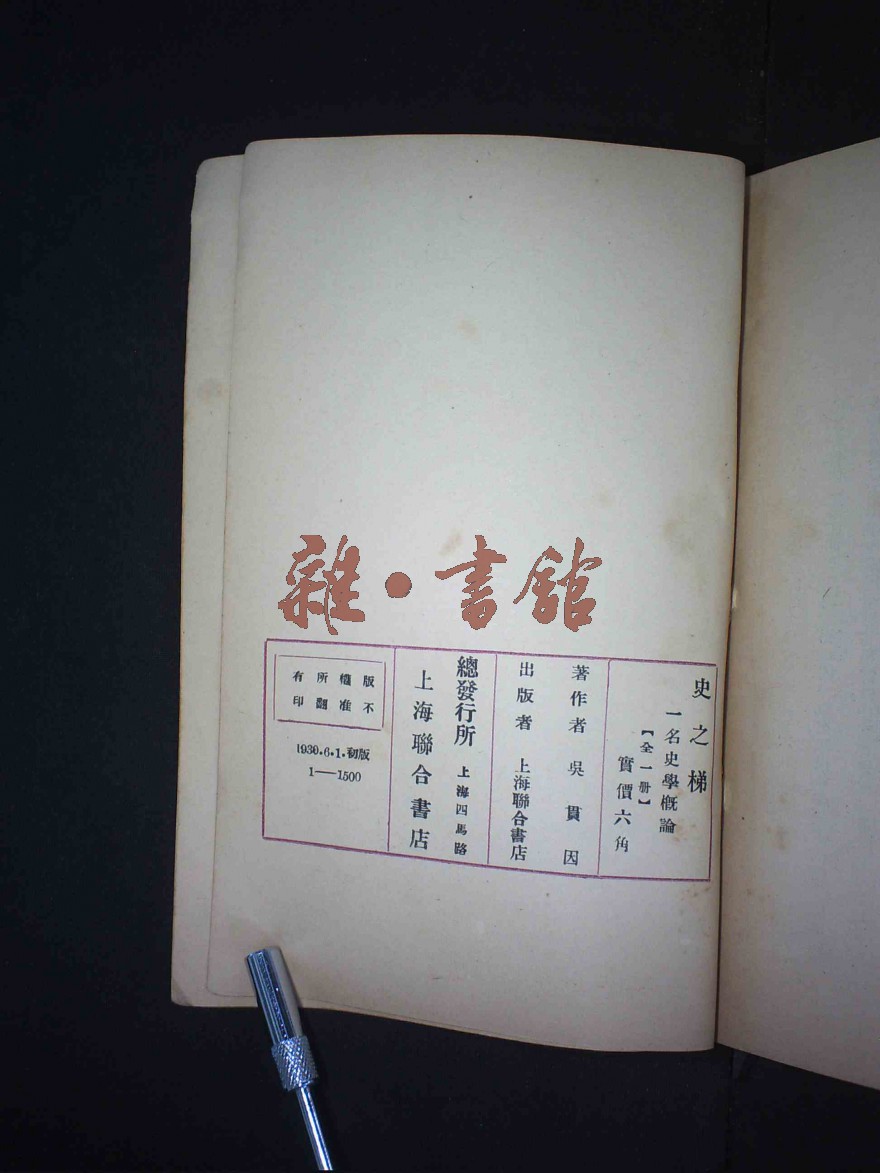 雜·書館
史之梯
一名史學概論
【全一册】
實價六角
著作者 吳貫因
出版者 上海聯合書店
總發行所 上海四馬路
上海聯合書店
版權所有
不准翻印
1930.6.1.初版
1—1500